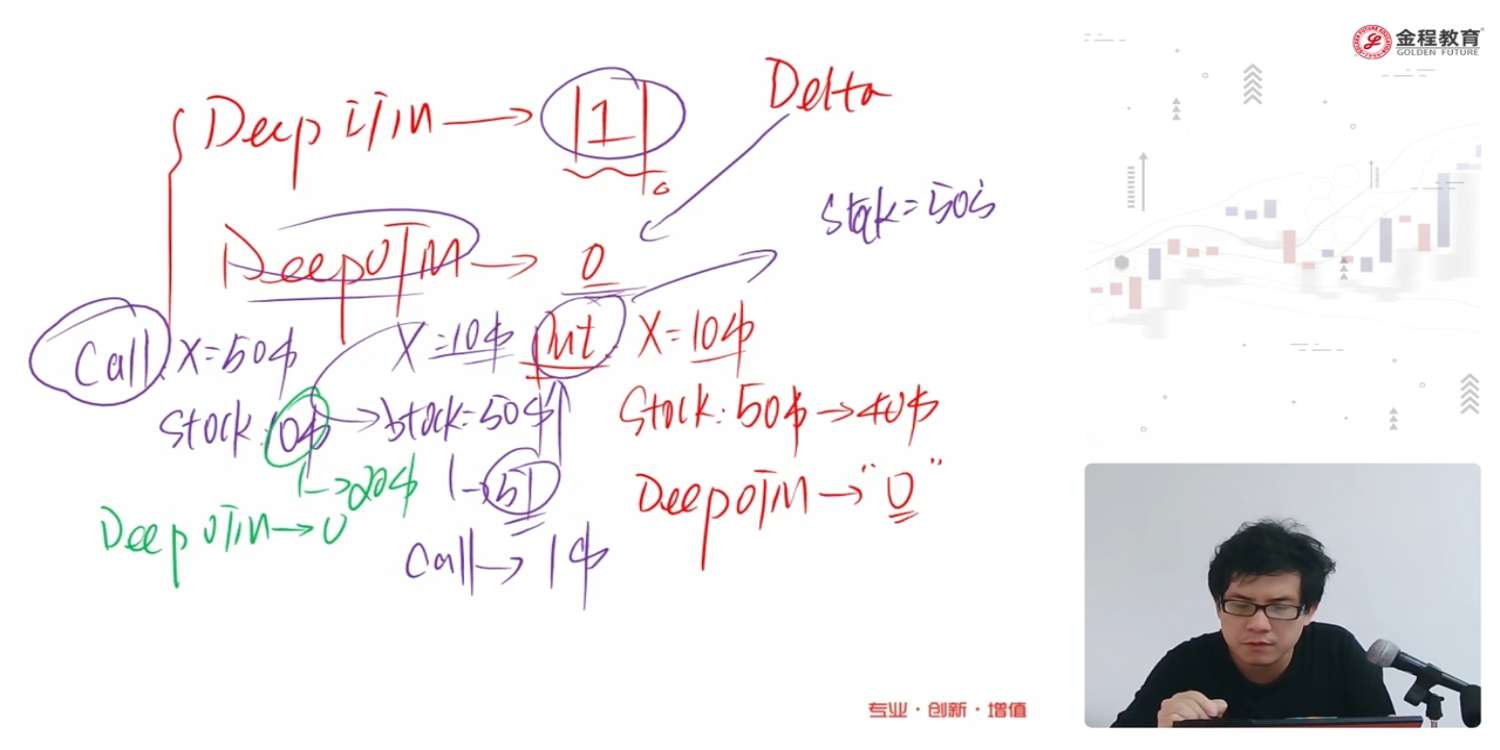 金程教育
GOLDEN FUTURE
Delta
Deep ITM → |1|
Stock = 50$
Deep OTM → 0
Call X = 50$ X = 10$ Put X = 10$
Stock: 10$ → Stock = 50$ Stock: 50$ → 40$
→ 20$ → 51 Deep OTM → "0"
Deep OTM → 0
Call → 1$
专业·创新·增值